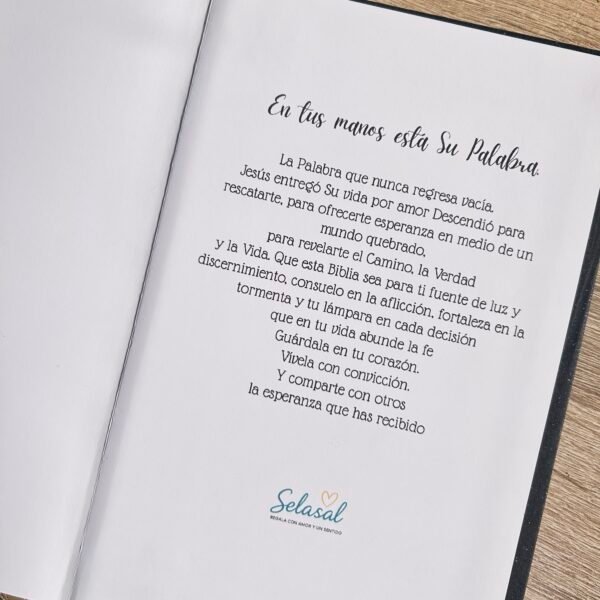 En tus manos está Su Palabra.
La Palabra que nunca regresa vacía.
Jesús entregó Su vida por amor Descendió para
rescatarte, para ofrecerte esperanza en medio de un
mundo quebrado,
para revelarte el Camino, la Verdad
y la Vida. Que esta Biblia sea para ti fuente de luz y
discernimiento, consuelo en la aflicción, fortaleza en la
tormenta y tu lámpara en cada decisión
que en tu vida abunde la fe
Guárdala en tu corazón.
Vívela con convicción.
Y comparte con otros
la esperanza que has recibido
Selasal
REGALA CON AMOR Y UN SENTIDO